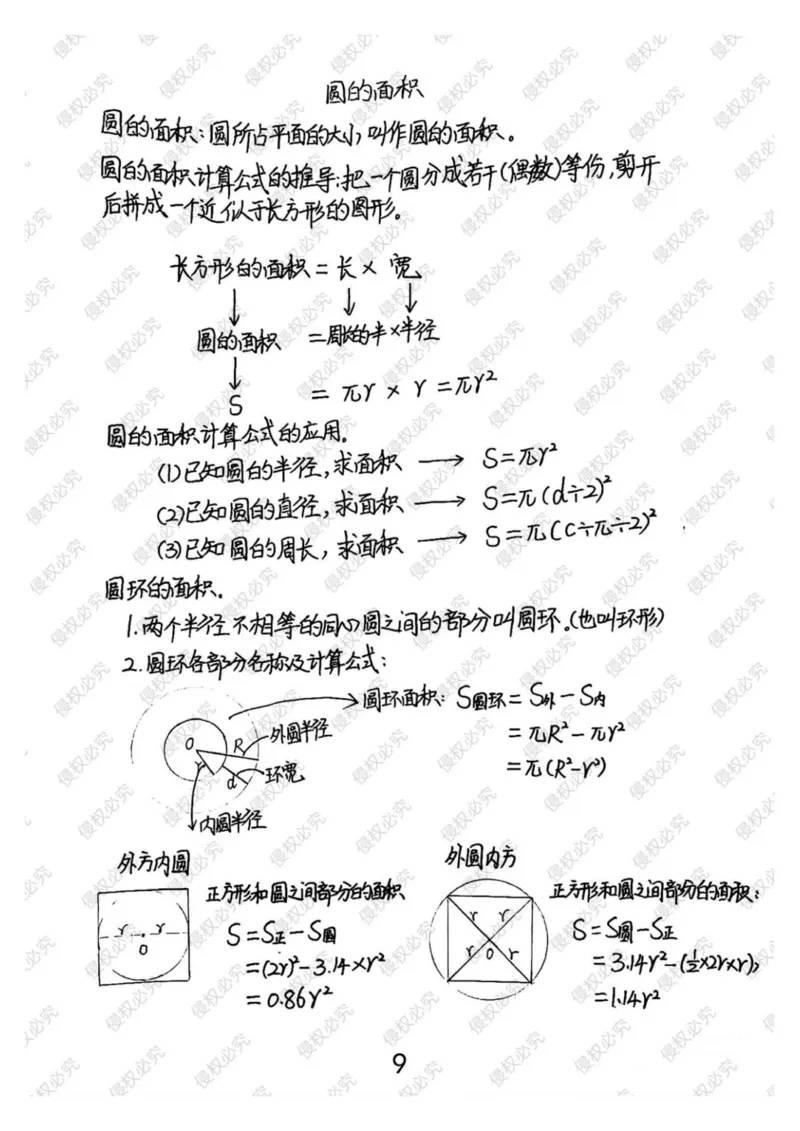 圆的面积
圆的面积:圆所占平面的大小叫作圆的面积。
圆的面积计算公式的推导:把一个圆分成若干(偶数)等份,剪开
后拼成一个近似于长方形的图形。
长方形的面积=长×宽
↓ ↓ ↓
圆的面积 =周长的半×半径
↓
S = πr × r =πr²
圆的面积计算公式的应用。
(1)已知圆的半径,求面积 → S=πr²
(2)已知圆的直径,求面积 → S=π(d÷2)²
(3)已知圆的周长,求面积 → S=π(C÷π÷2)²
圆环的面积.
1.两个半径不相等的同心圆之间的部分叫圆环。(也叫环形)
2.圆环各部分名称及计算公式:
圆环面积: S圆环=S外-S内
=πR²-πr²
=π(R²-r²)
O R 外圆半径
r d 环宽
内圆半径
外方内圆
正方形和圆之间部分的面积
r r
O
S=S正-S圆
=(2r)²-3.14×r²
=0.86r²
外圆内方
正方形和圆之间部分的面积:
r r
r O r
S=S圆-S正
=3.14r²-(½×2r×r)×2
=1.14r²
9
侵权必究